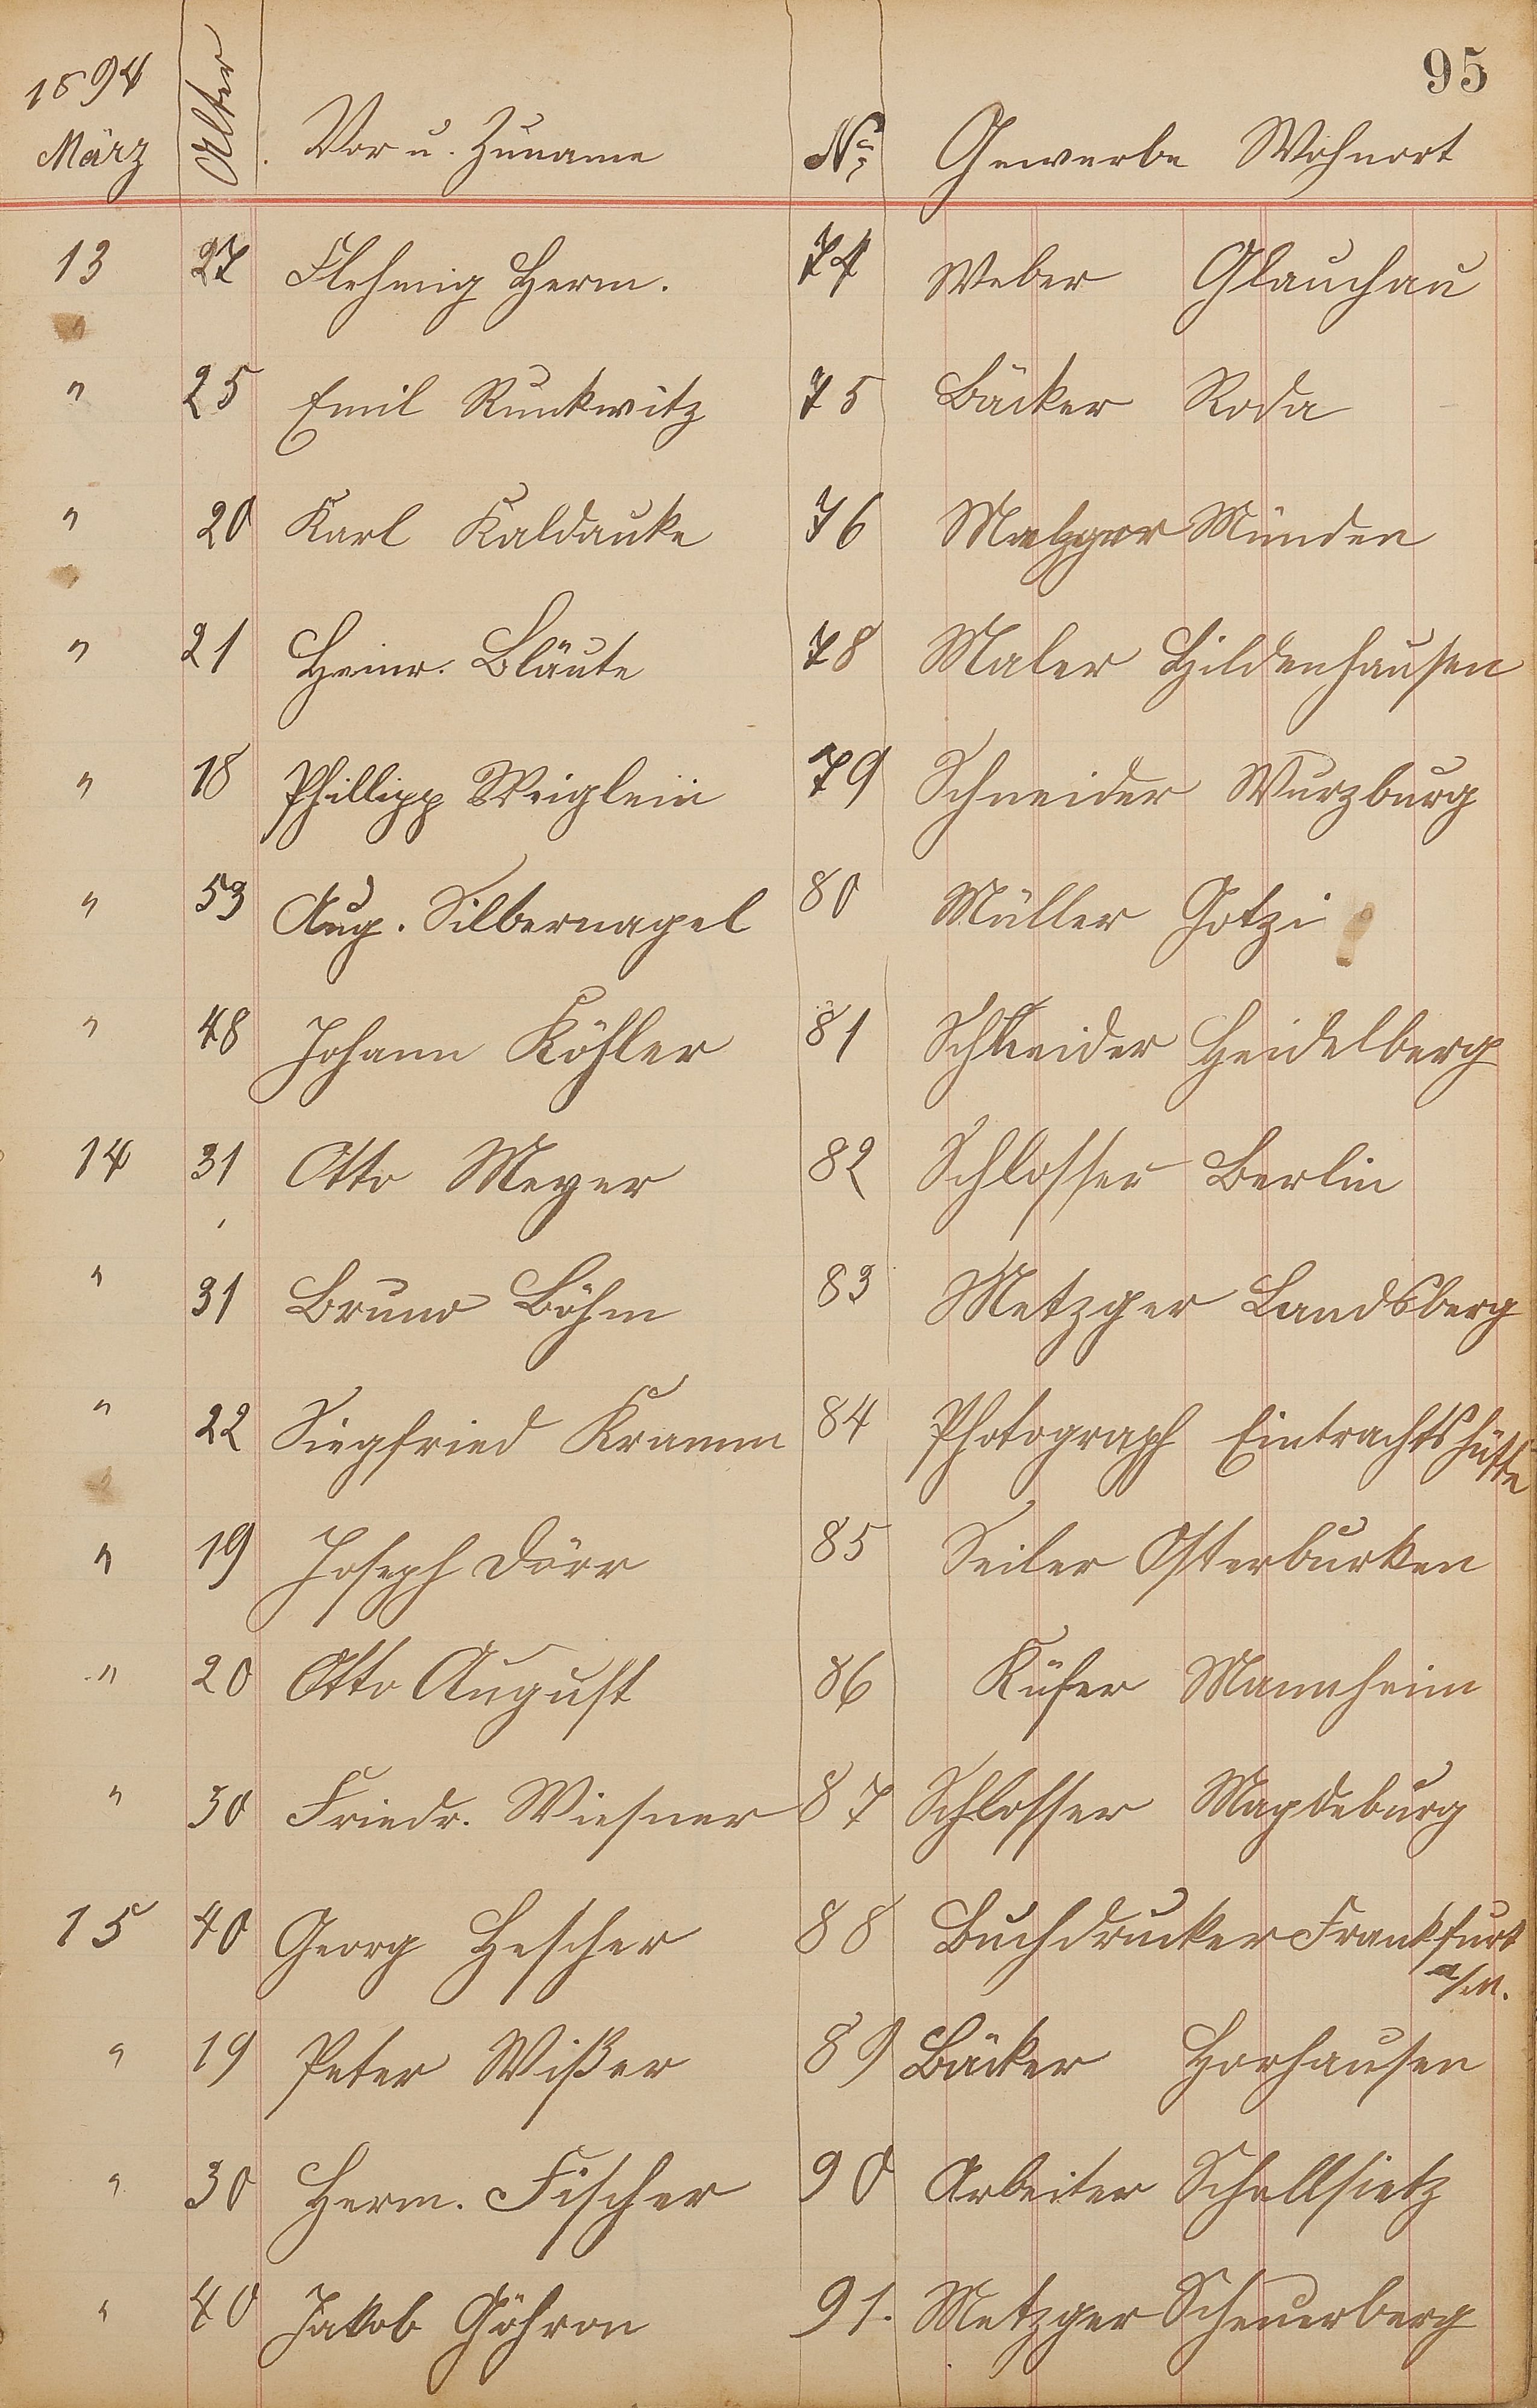 95
1894 Alter
März Vor u. Zuname No. Gewerbe Wohnort
13 27 Flehmig Herm. 74 Weber Glauchau
" 25 Emil Runkwitz 75 Bäcker Roda
" 20 Karl Kaldauke 76 Metzger Münden
" 21 Heinr. Bläute 78 Maler Hildenhausen
" 18 Phillipp Weiglein 79 Schneider Wurzburg
" 53 Aug. Silbernagel 80 Müller Gotzi
" 48 Johann Köhler 81 Schneider Heidelberg
14 31 Otto Meyer 82 Schlosser Berlin
" 31 Bruno Böhm 83 Metzger Landsberg
" 22 Siegfried Kramm 84 Photograph Eintrachtshütte
" 19 Joseph Dörr 85 Seiler Osterburken
" 20 Otto August 86 Küfer Mannheim
" 30 Friedr. Wiesner 87 Schlosser Magdeburg
15 40 Georg Hescher 88 Buchdrucker Frankfurt
a/M.
" 19 Peter Wißer 89 Bäcker Horhausen
" 30 Herm. Fischer 90 Arbeiter Schallsietz
" 40 Jakob Göhron 91. Metzger Scheuerberg